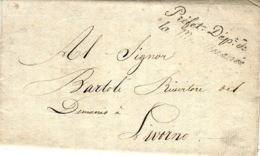 Préfet Dépt. de
la M
Al Signor
Bartoli Ricevitore del
Demanio à
Livorno